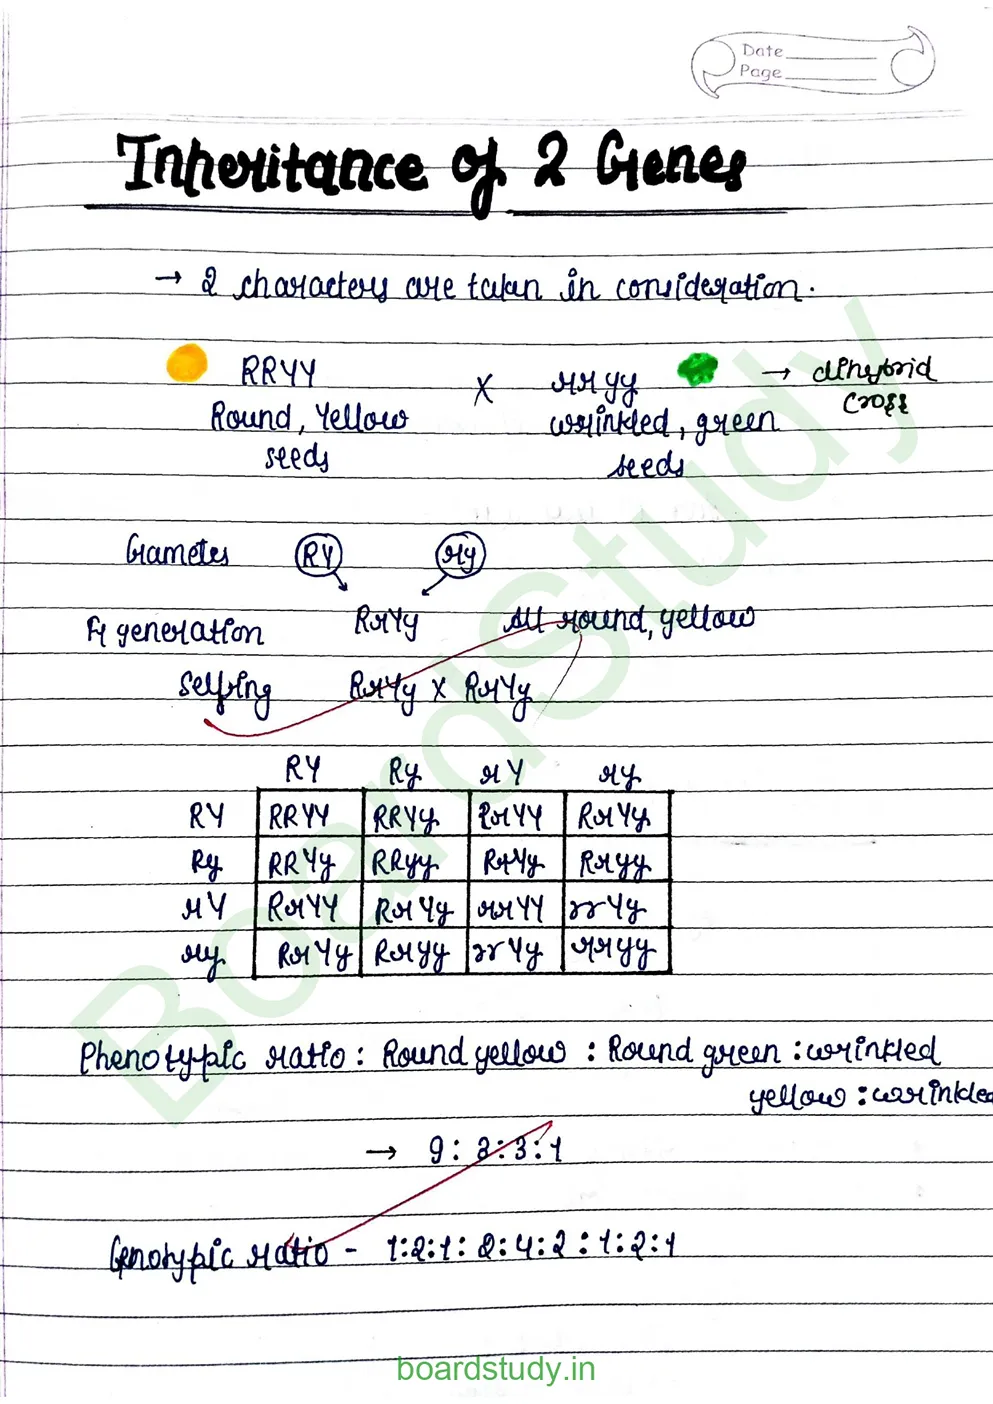 Date
Page
Inheritance of 2 Genes
→ 2 characters are taken in consideration.
RRYY X rryy → dihybrid
cross
Round, Yellow wrinkled, green
seeds seeds
Gametes RY ry
F1 generation RrYy All round, yellow
Selfing RrYy X RrYy
RY Ry rY ry
RY RRYY RRYy RrYY RrYy
Ry RRYy RRyy RrYy Rryy
rY RrYY RrYy rrYY rrYy
ry RrYy Rryy rrYy rryy
Phenotypic ratio : Round yellow : Round green : wrinkled
yellow : wrinkled
→ 9 : 3 : 3 : 1
Genotypic ratio - 1:2:1 : 2:4:2 : 1:2:1
BoardStudy
boardstudy.in